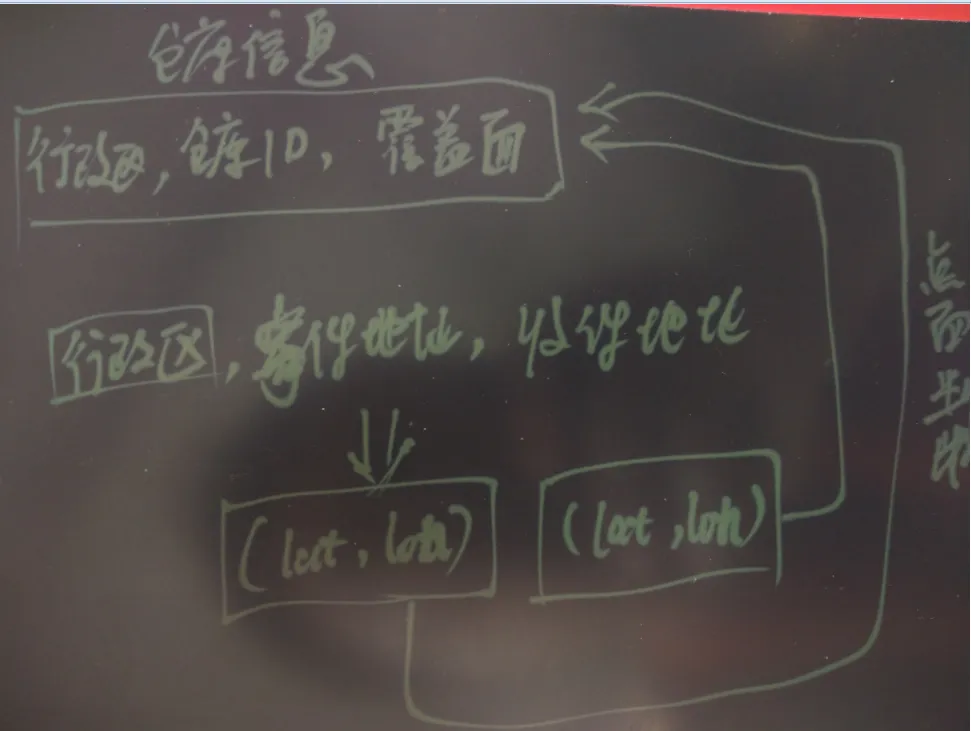 仓库信息
行政区, 仓库ID, 覆盖面
行政区, 寄件地址, 收件地址
(lat, lon)
(lat, lon)
点面